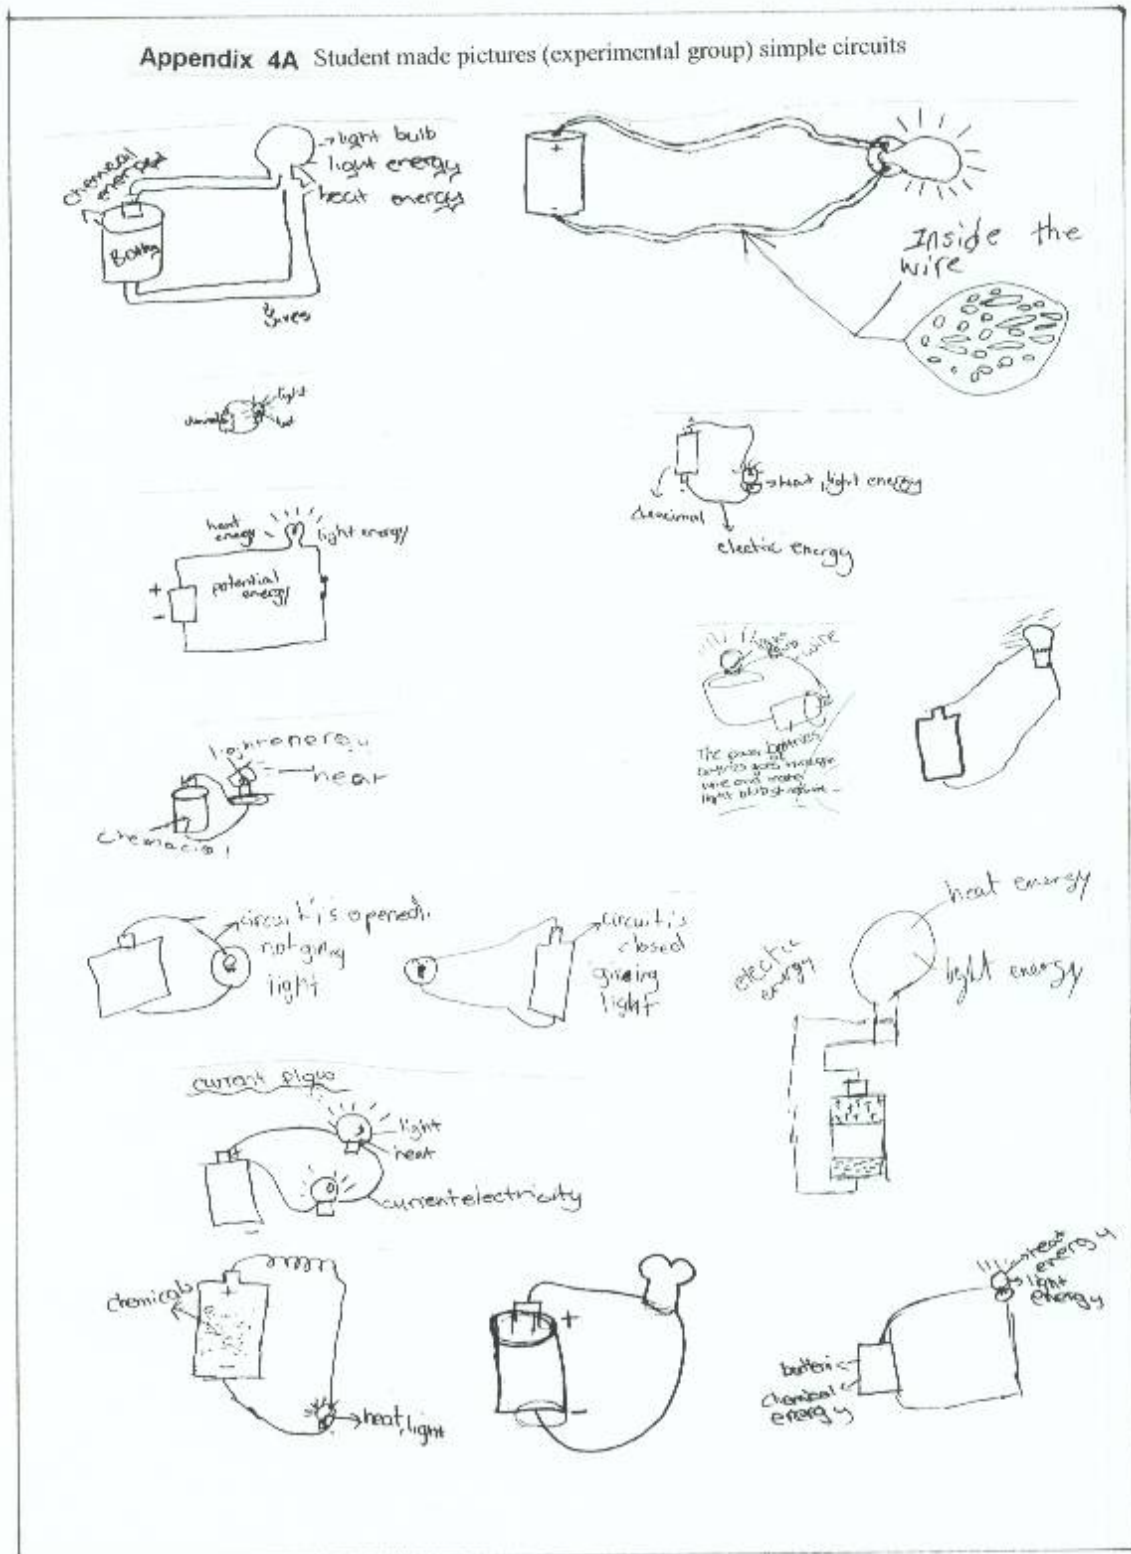 Appendix 4A Student made pictures (experimental group) simple circuits
chemical
light bulb
light energy
heat energy
wires
+
-
Inside the
wire
light
heat
-
heat, light energy
electric energy
heat
energy
light energy
potential
energy
+
-
light
wire
The
wire and
light
light energy
heat
chemacial
circuit is opened.
not giving
light
circuit is
closed
giving
light
heat energy
light energy
electric
energy
current
light
heat
current electricity
-
chemicals
+
-
heat, light
+
-
heat
energy
light
energy
batteri
chemical
energy